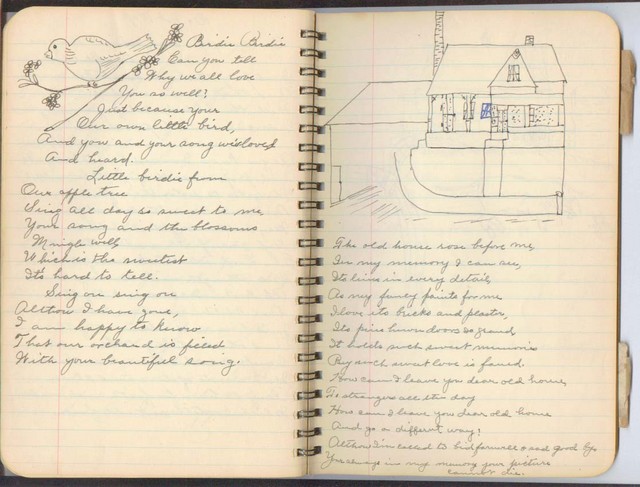 Birdie Birdie
Can you tell
Why we all love
You so well?
Just because your
Our own little bird,
And you and your song we loved
And heard.
Little birdie from
Our apple tree
Sing all day so sweet to me,
Your song and the blossoms
Mingle well,
Which is the sweetest
It's hard to tell.
Sing on sing on
Althow I have gone,
I am happy to know
That our orchard is filled
With your beautiful song.
The old house rose before me,
In my memory I can see,
Its lines in every detail,
As my fancy paints for me
I love its bricks and plaster,
Its pine hewn doors so grand,
It holds such sweet memories
such sweet love is found.
How can I leave you dear old home,
To strangers all the day
How can I leave you dear old home
And go a different way?
Althow I'm called to bid farewell and good bye
in my memory your picture
cannot die.